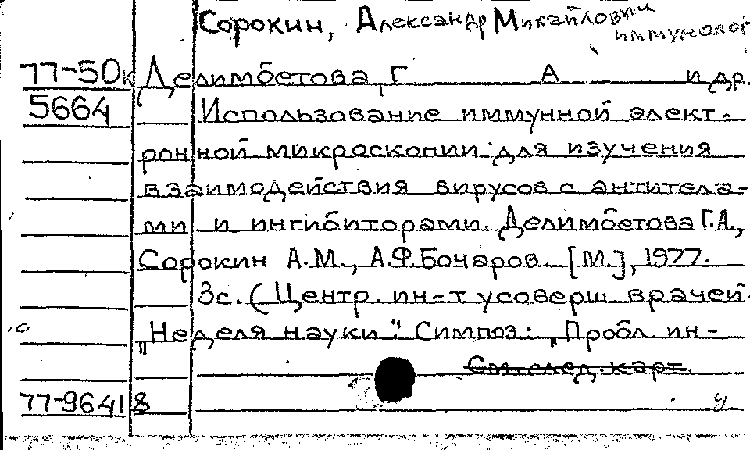 Сорокин, Александр Михайлович
иммунолог
77-50к Делимбетова, Г А и др.
5664 Использование иммунной элект-
ронной микроскопии для изучения
взаимодействия вирусов с антитела-
ми и ингибиторами. Делимбетова Г.А.,
Сорокин А.М., А.Ф.Бочаров. [М.], 1977.
3с. (Центр. ин-т усоверш. врачей
"Неделя науки". Симпоз.: "Пробл. ин-
См. след. карт.
77-96418